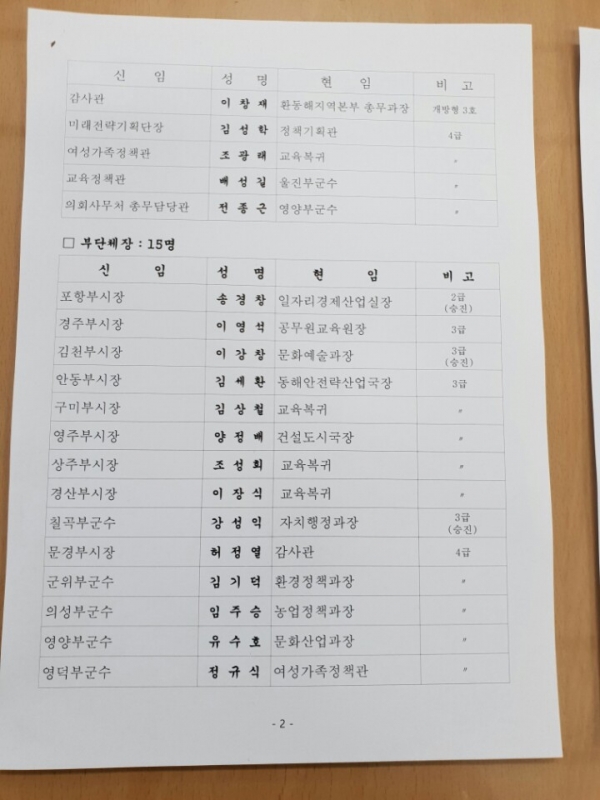 신 임 성 명 현 임 비 고
감사관 이 창 재 환동해지역본부 총무과장 개방형 3호
미래전략기획단장 김 성 학 정책기획관 4급
여성가족정책관 조 광 래 교육복귀 〃
교육정책관 배 성 길 울진부군수 〃
의회사무처 총무담당관 전 종 근 영양부군수 〃
□ 부단체장 : 15명
신 임 성 명 현 임 비 고
포항부시장 송 경 창 일자리경제산업실장 2급
(승진)
경주부시장 이 영 석 공무원교육원장 3급
김천부시장 이 강 창 문화예술과장 3급
(승진)
안동부시장 김 세 환 동해안전략산업국장 3급
구미부시장 김 상 철 교육복귀 〃
영주부시장 양 정 배 건설도시국장 〃
상주부시장 조 성 희 교육복귀 〃
경산부시장 이 장 식 교육복귀 〃
칠곡부군수 강 성 익 자치행정과장 3급
(승진)
문경부시장 허 정 열 감사관 4급
군위부군수 김 기 덕 환경정책과장 〃
의성부군수 임 주 승 농업정책과장 〃
영양부군수 유 수 호 문화산업과장 〃
영덕부군수 정 규 식 여성가족정책관 〃
- 2 -